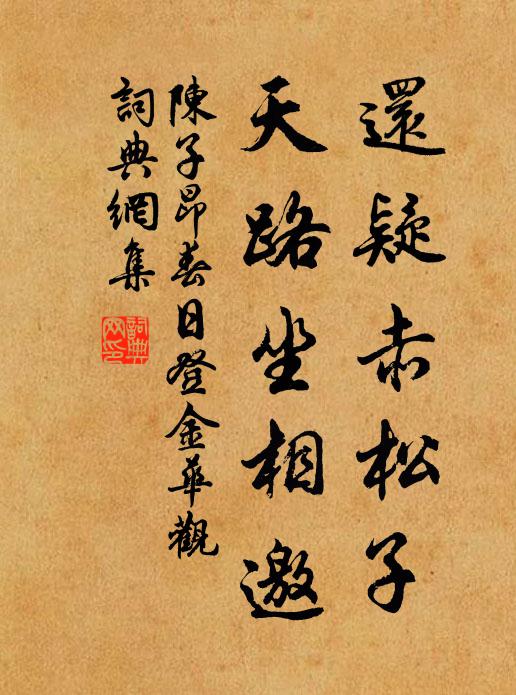 還疑赤松子
天路坐相邀
陳子昂春日登金華觀
詞典網集
詞典
网印